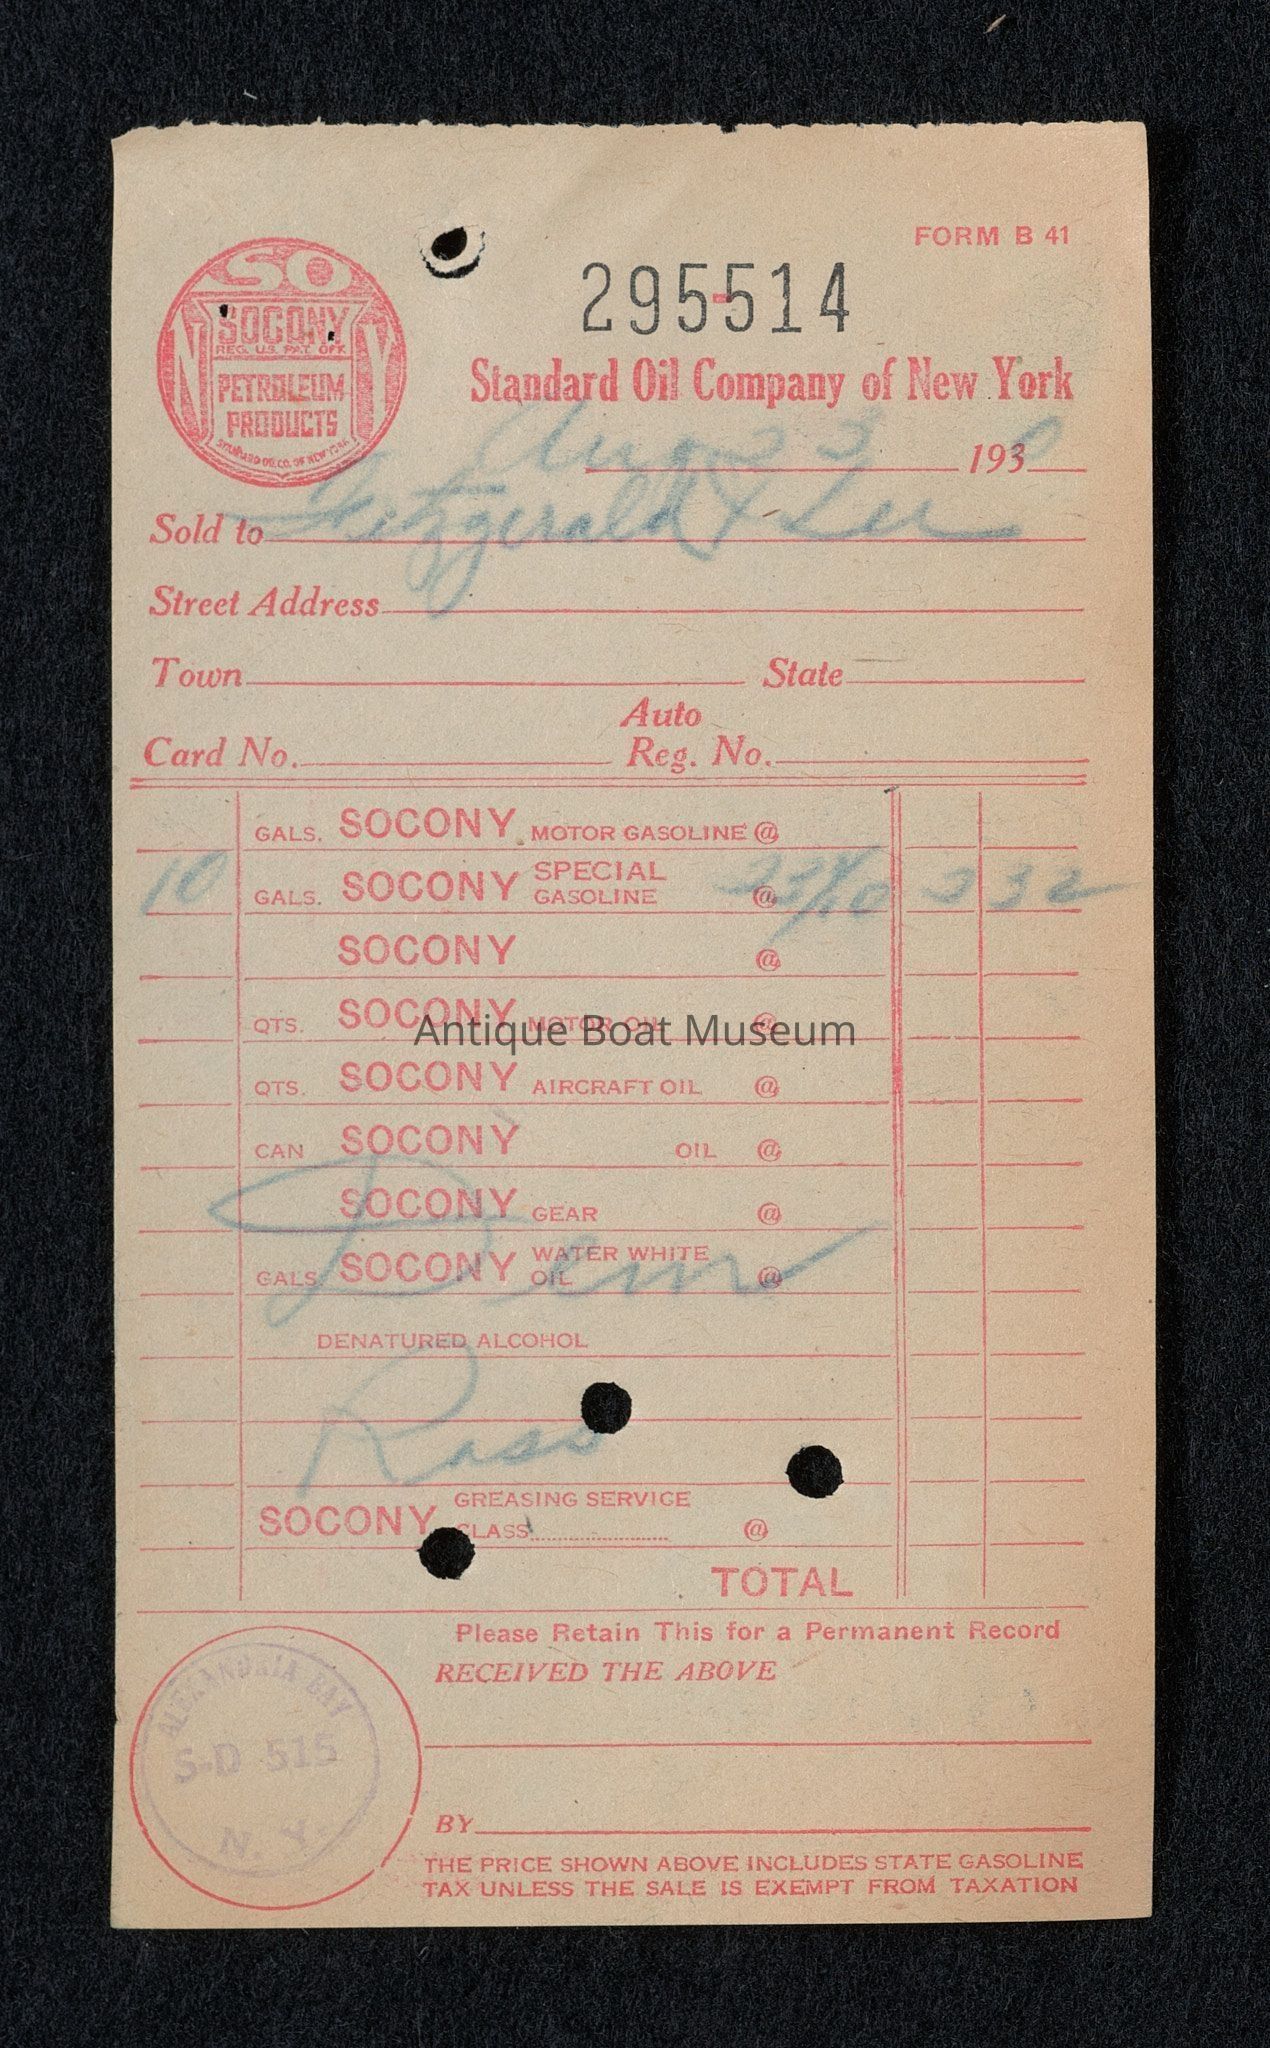 FORM B 41
SO
NY
SOCONY
REG. U.S. PAT. OFF.
PETROLEUM
PRODUCTS
STANDARD OIL CO. OF NEW YORK
295-514
Standard Oil Company of New York
Aug 23 1930
Sold to Fitzgerald & Lee
Street Address
Town State
Auto
Card No. Reg. No.
GALS. SOCONY MOTOR GASOLINE @
10 GALS. SOCONY SPECIAL GASOLINE @ 2 32
SOCONY @
QTS. SOCONY MOTOR OIL @
Antique Boat Museum
QTS. SOCONY AIRCRAFT OIL @
CAN SOCONY OIL @
SOCONY GEAR @
GALS. SOCONY WATER WHITE OIL @
DENATURED ALCOHOL
SOCONY GREASING SERVICE
CLASS @
TOTAL
Please Retain This for a Permanent Record
RECEIVED THE ABOVE
ALEXANDRIA BAY
S-D 515
N. Y.
BY
THE PRICE SHOWN ABOVE INCLUDES STATE GASOLINE
TAX UNLESS THE SALE IS EXEMPT FROM TAXATION